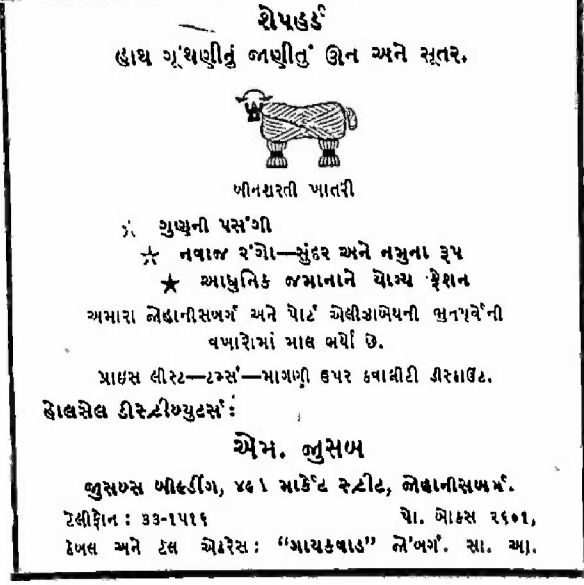 શેપહર્ડ
હાથ ગૂંથણીનું જાણીતું ઊન અને સૂતર.
બીનશરતી ખાતરી
☆ ગુણની પસંગી
☆ નવાજ રંગો—સુંદર અને નમુના રૂપ
★ આધુનિક જમાનાને યોગ્ય ફેશન
અમારા જોહાનીસબર્ગ અને પોર્ટ એલીઝાબેથની ભુતપૂર્વની
વખારોમાં માલ ભર્યો છે.
પ્રાઇસ લીસ્ટ—ટર્મ્સ—માગણી ઉપર કવાલીટી ડીસ્કાઉંટ.
હોલસેલ ડીસ્ટ્રીબ્યુટર્સ:
એમ. જુસબ
જુસબ્સ બીલ્ડીંગ, ૪૯૧ માર્કેટ સ્ટ્રીટ, જોહાનીસબર્ગ.
ટેલીફોન : ૩૩-૧૫૧૬ પો. બોકસ ૨૬૦૧,
કેબલ અને ટેલ એડ્રેસ : "ગાયકવાડ" જો'બર્ગ. સા. આ.